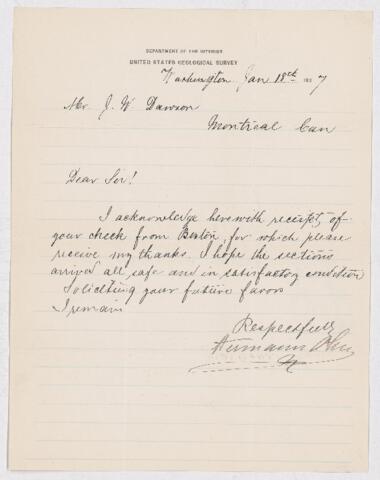 DEPARTMENT OF THE INTERIOR
UNITED STATES GEOLOGICAL SURVEY
Washington Jan 18th 1887
Mr J. W. Dawson
Montreal Can
Dear Sir!
I acknowledge herewith receipt of
your check from Boston, for which please
receive my thanks. I hope the sections
arrived all safe and in satisfactory condition
Soliciting your future favors
I remain
Respectfully